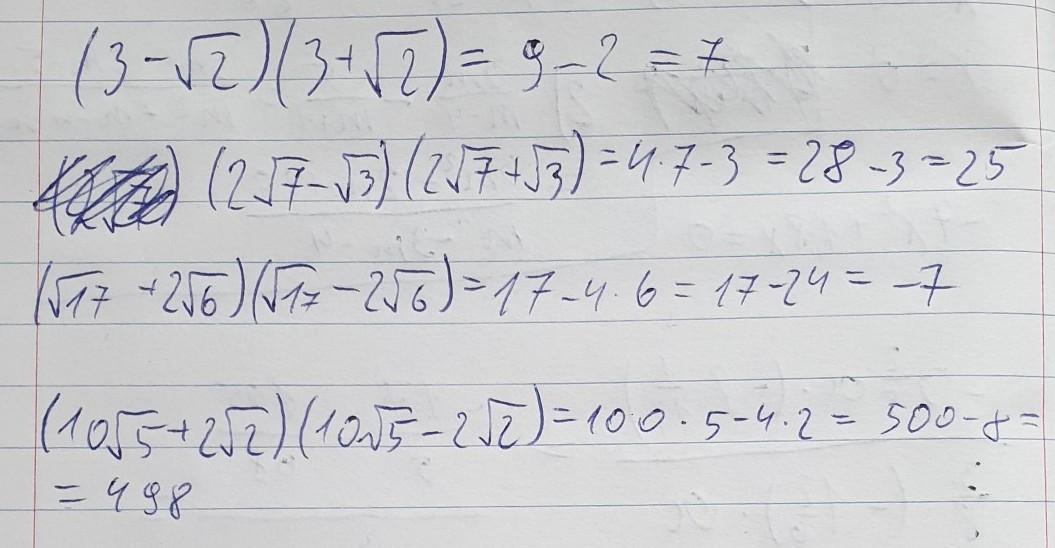 (3-√2)(3+√2) = 9-2 = 7
(2√7-√3)(2√7+√3) = 4·7-3 = 28-3 = 25
(√17+2√6)(√17-2√6) = 17-4·6 = 17-24 = -7
(10√5+2√2)(10√5-2√2) = 100·5-4·2 = 500-8 =
= 498